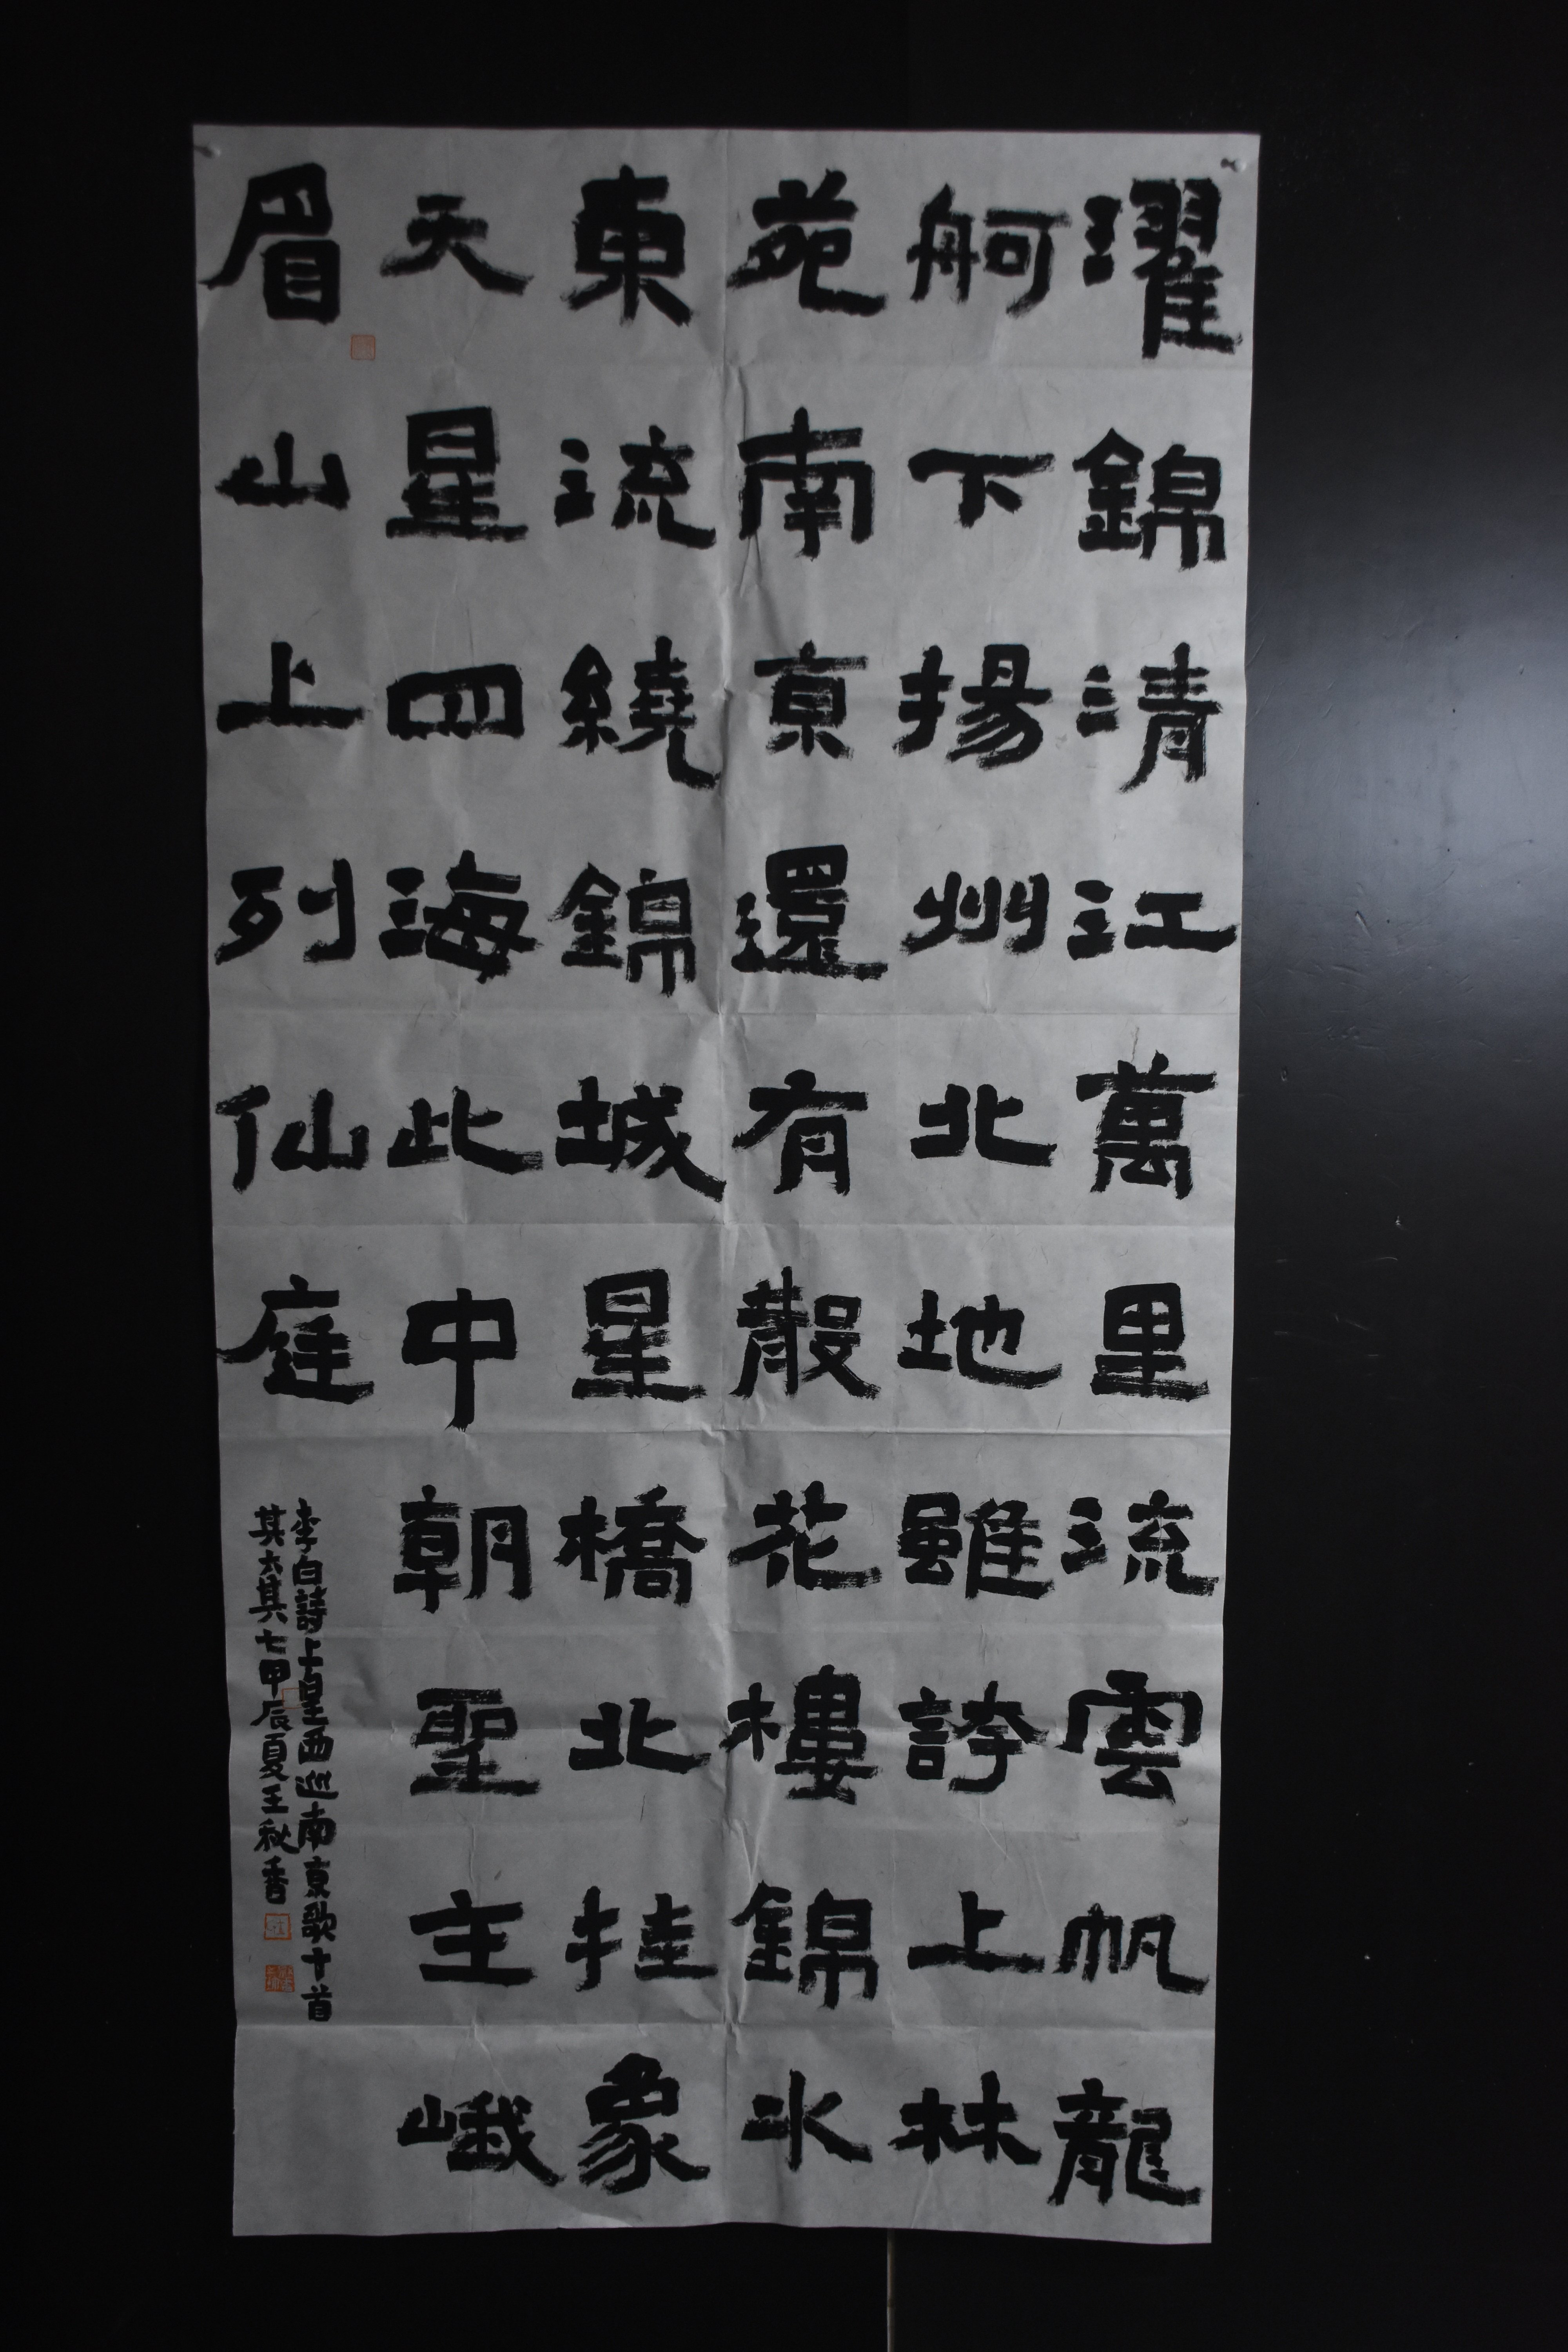 濯錦清江萬里流雲帆龍
舸下揚州北地雖誇上林
苑南京還有散花樓錦水
東流繞錦城星橋北挂象
天星四海此中朝聖主峨
眉山上列仙庭
李白詩上皇西巡南京歌十首
其六其七甲辰夏王秋香